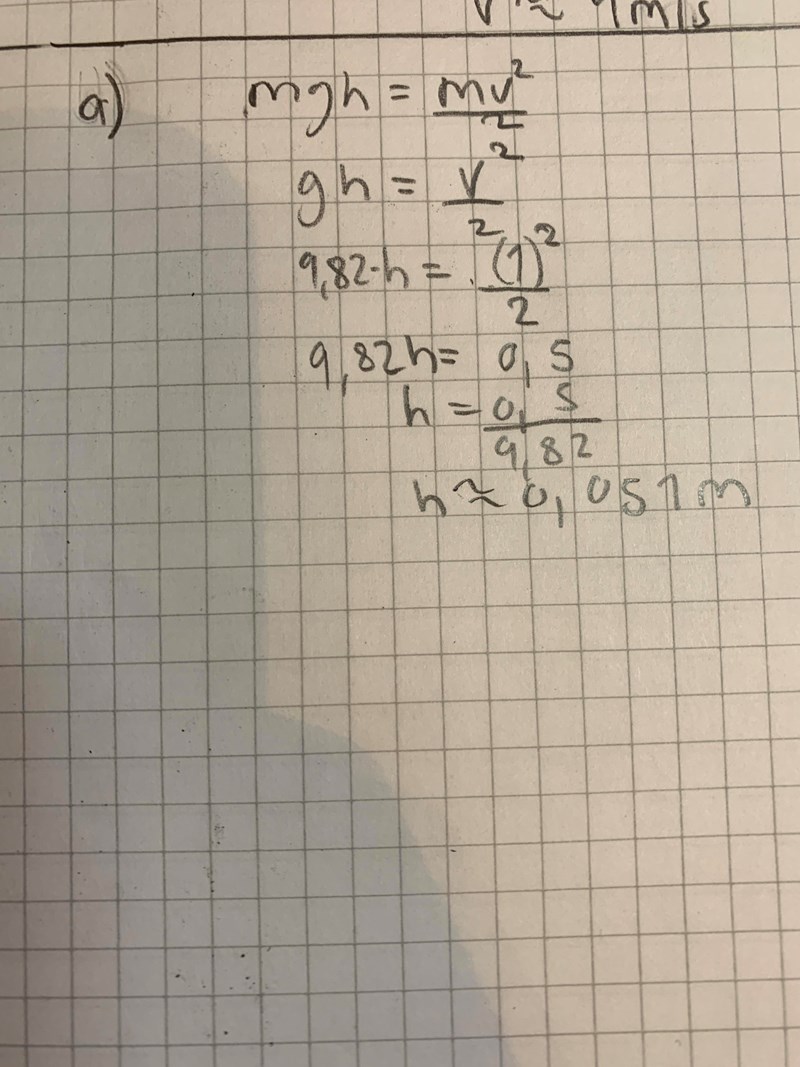 v ≈ 1 m/s
a) mgh = mv²/2
gh = v²/2
9,82·h = (1)²/2
9,82h = 0,5
h = 0,5/9,82
h ≈ 0,051 m